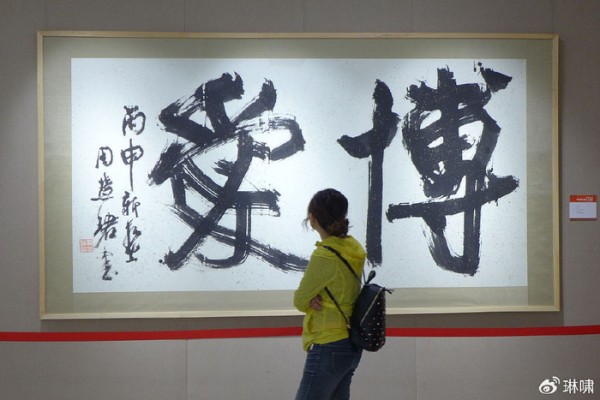 博爱
丙申新
周慧珺书
琳啸